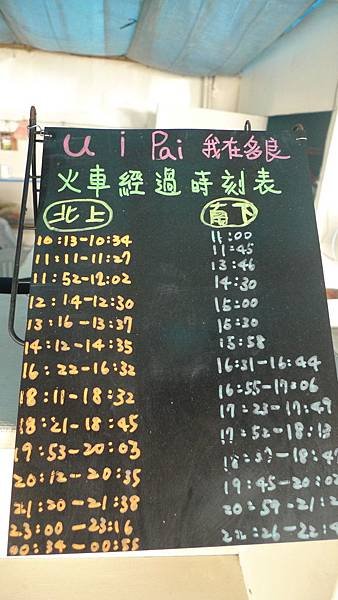 u i Pai 我在多良
火車經過時刻表
北上 南下
10:13-10:34 11:00
11:11-11:27 11:45
11:52-12:02 13:46
12:14-12:30 14:30
13:16-13:37 15:00
14:12-14:35 15:30
16:22-16:32 15:58
18:11-18:32 16:31-16:44
18:21-18:45 16:55-17:06
19:53-20:03 17:23-17:49
20:12-20:35 17:52-18:13
21:20-21:38
23:00-23:16 19:45-20:02
00:34-00:55